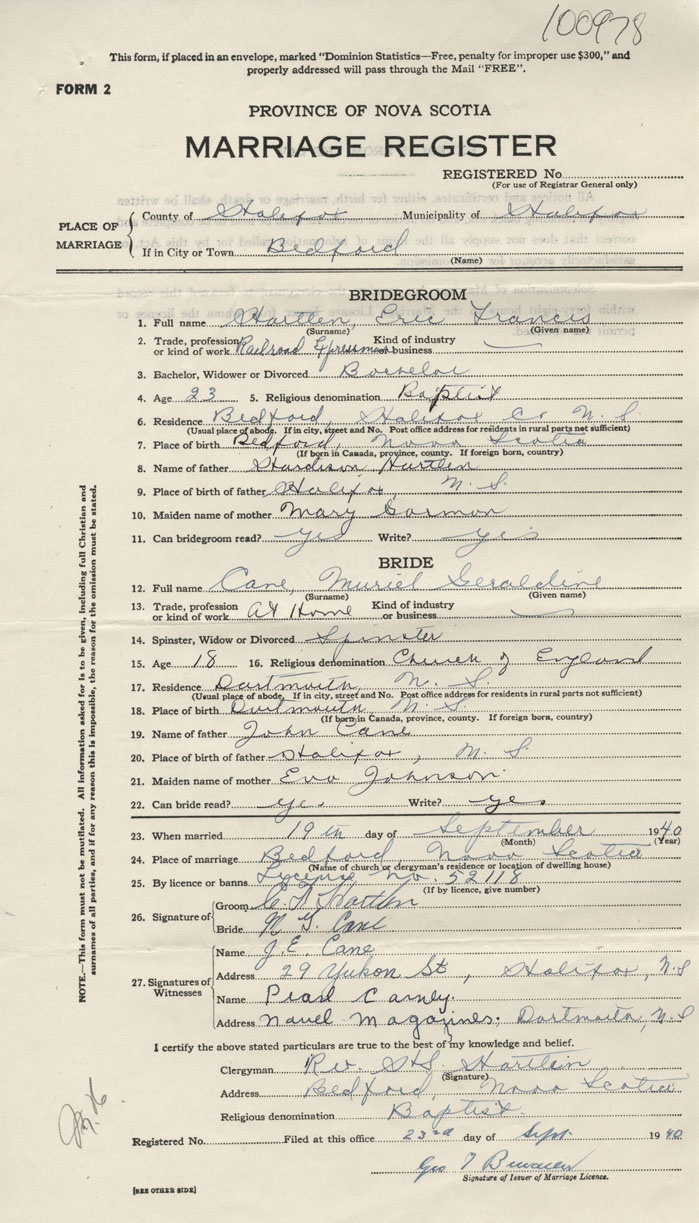 100978
This form, if placed in an envelope, marked "Dominion Statistics—Free, penalty for improper use $300," and
properly addressed will pass through the Mail "FREE".
FORM 2
PROVINCE OF NOVA SCOTIA
MARRIAGE REGISTER
REGISTERED No.
(For use of Registrar General only)
PLACE OF MARRIAGE
County of Halifax Municipality of Halifax
If in City or Town Bedford
(Name)
BRIDEGROOM
1. Full name Hartlen, Eric Francis
(Surname) (Given name)
2. Trade, profession or kind of work Railroad Expressman Kind of industry or business
3. Bachelor, Widower or Divorced Bachelor
4. Age 23 5. Religious denomination Baptist
6. Residence Bedford, Halifax Co. N. S.
(Usual place of abode. If in city, street and No. Post office address for residents in rural parts not sufficient)
7. Place of birth Bedford, Nova Scotia
(If born in Canada, province, county. If foreign born, country)
8. Name of father Hartlen
9. Place of birth of father Halifax, N. S.
10. Maiden name of mother Mary Gormon
11. Can bridegroom read? yes Write? yes
BRIDE
12. Full name Cane, Muriel Geraldine
(Surname) (Given name)
13. Trade, profession or kind of work At Home Kind of industry or business
14. Spinster, Widow or Divorced Spinster
15. Age 18 16. Religious denomination Church of England
17. Residence Dartmouth, N. S.
(Usual place of abode. If in city, street and No. Post office address for residents in rural parts not sufficient)
18. Place of birth Dartmouth N. S.
(If born in Canada, province, county. If foreign born, country)
19. Name of father John Cane
20. Place of birth of father Halifax, N. S.
21. Maiden name of mother Eva Johnson
22. Can bride read? yes Write? yes
23. When married 19th day of September 1940
(Month) (Year)
24. Place of marriage Bedford Nova Scotia
(Name of church or clergyman's residence or location of dwelling house)
25. By licence or banns License No. 52118
(If by licence, give number)
26. Signature of
Groom Hartlen
Bride M G. Cane
27. Signatures of Witnesses
Name J. E. Cane
Address 29 Yukon St, Halifax, N.S
Name Pearl Carney.
Address Navel Magazines, Dartmouth, N.S
I certify the above stated particulars are true to the best of my knowledge and belief.
Clergyman Rev. Hartlen
(Signature)
Address Bedford, Nova Scotia
Religious denomination Baptist.
Registered No. Filed at this office 23rd day of Sept. 1940
Geo T
Signature of Issuer of Marriage Licence.
[SEE OTHER SIDE]
NOTE.—This form must not be mutilated. All information asked for is to be given, including full Christian and
surnames of all parties, and if for any reason this is impossible, the reason for the omission must be stated.